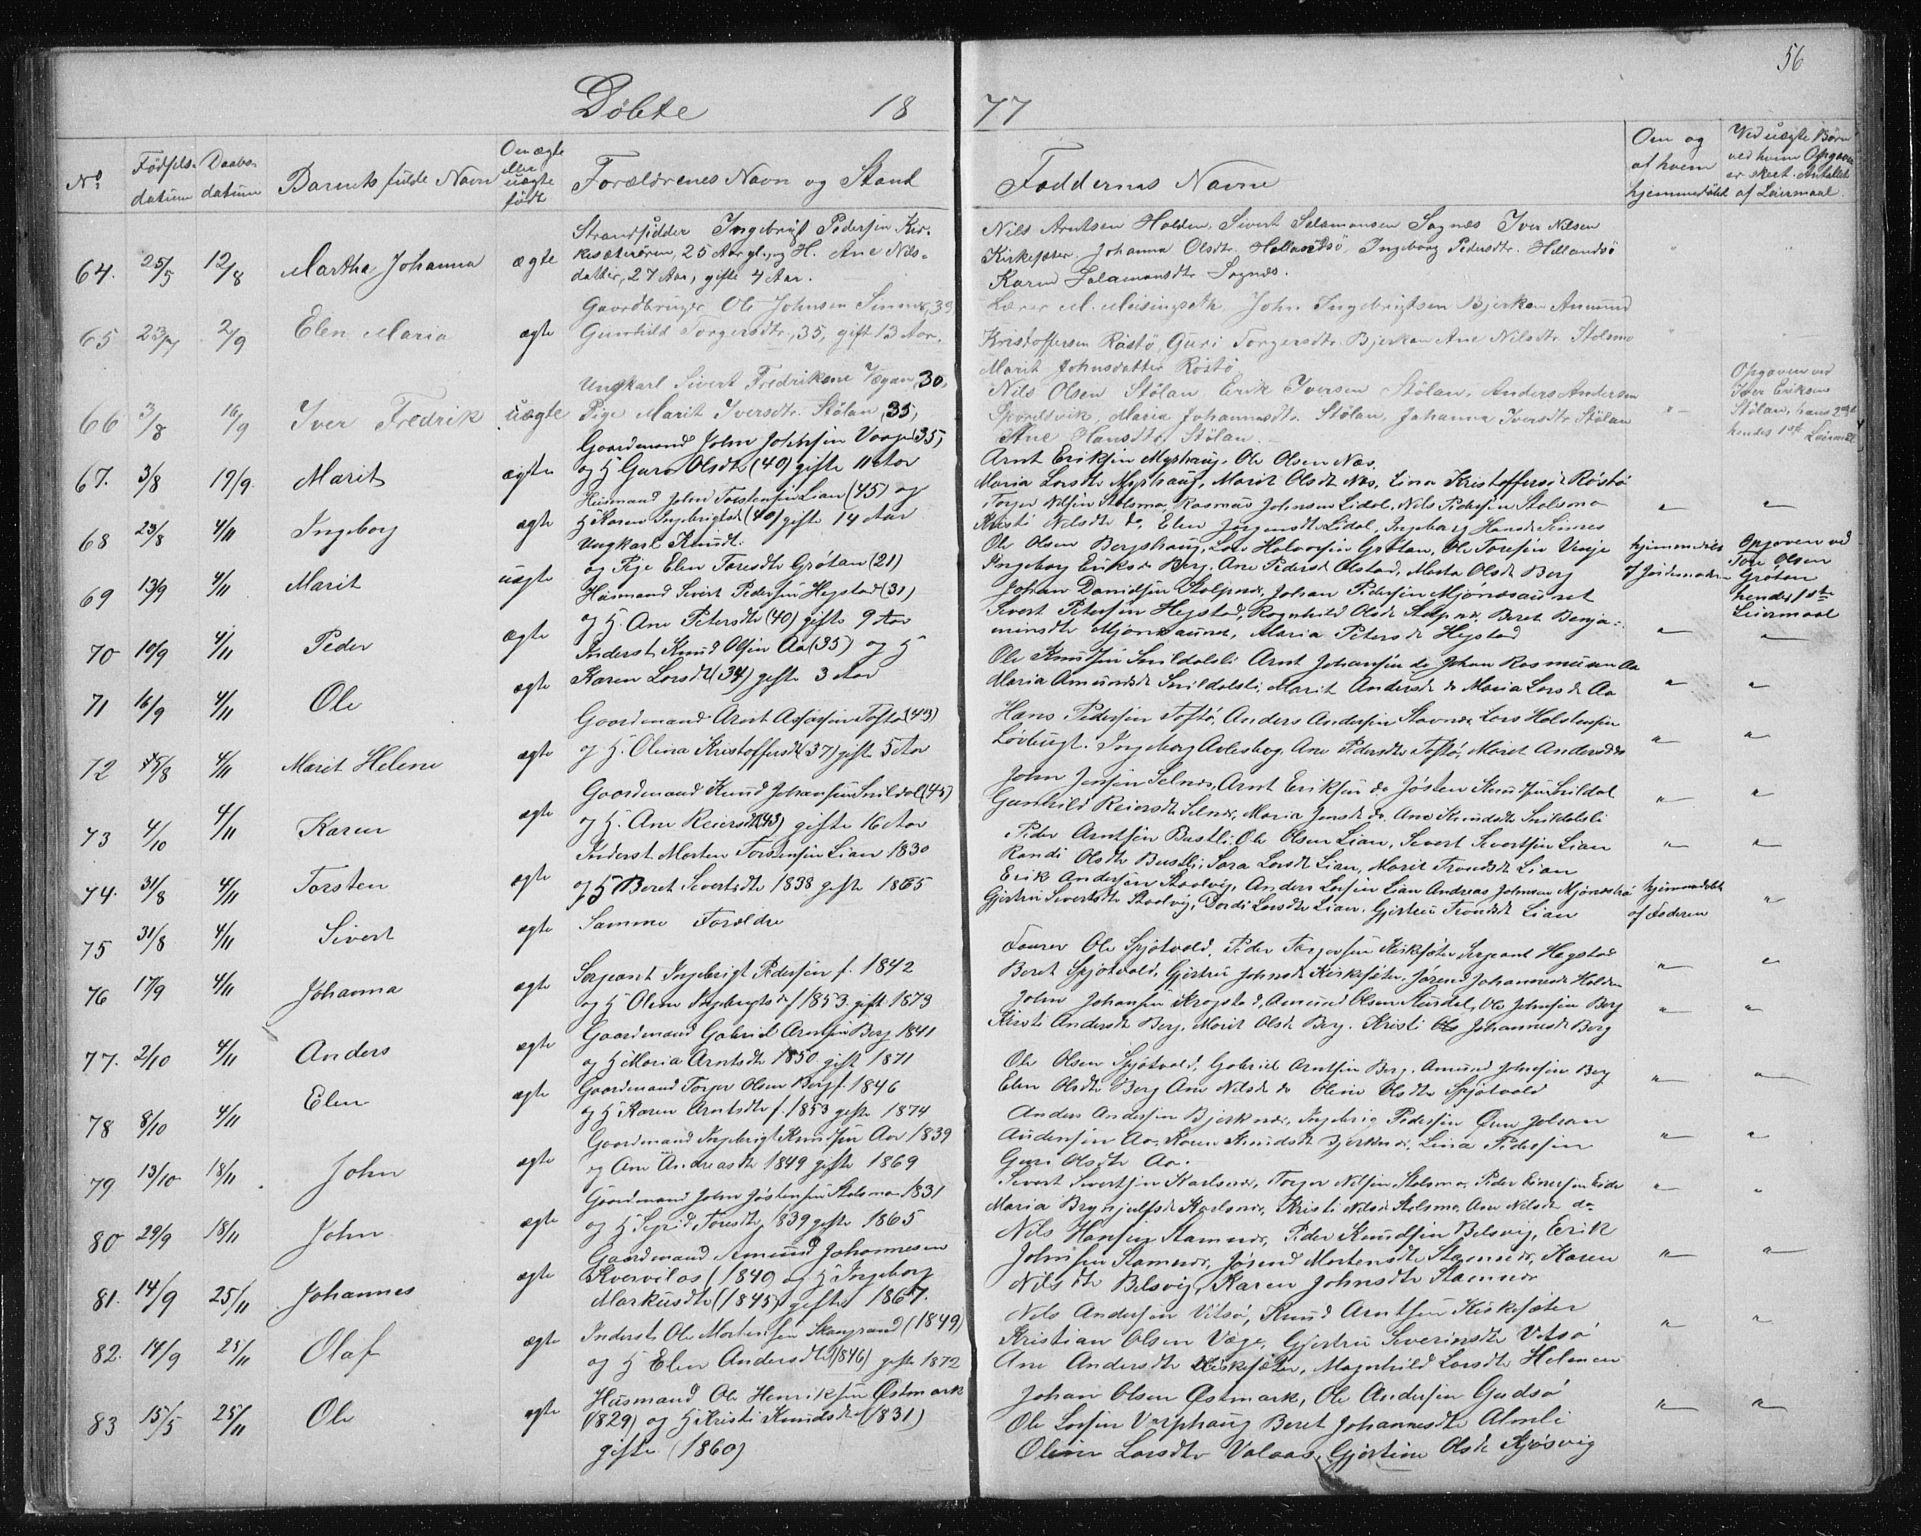 56
Døbte 18 77
No
Fødsels-
datum
Daabs-
datum
Barnets fulde Navn
Om ægte
eller
uægte
født
Forældrenes Navn og Stand
Faddernes Navne
Om og
af hvem
hjemmedøbt
Ved uægte Børn
ved hvem Opgaven
er skeet. Antallet
af Leiermaal.
64. 25/5 12/8 Martha Johanna ægte
Strandsidder Ingebrigt Pedersen Kir-
kesæterøren, 25 Aar gl., og H. Ane Nils-
datter, 27 Aar, gifte 4 Aar.
Nils Arntsen Holden, Sivert Salamonsen Sognes Iver Nilsen
Kirkesæter, Johanna Olsdt. Hollandsø, Ingeborg Pedersdt. Hollandsø
Karen Salamonsdt Sognes.
65 23/7 2/9 Elen Maria ægte
Gaardbruger Ole Johnsen Sinnes, 39
Gunhild Torgersdtr, 35, gift 13 Aar.
Lærer M. Meisingseth, John Ingebrigtsen Bjerkan Amund
Kristoffersen Røstø, Guri Torgersdtr. Bjerkan Ane Nilsdtr Stolsmo
Marit Johnsdatter Røstø
66 3/8 16/9 Iver Fredrik uægte
Ungkarl Sivert Fredriksen Vægan, 30,
Pige Marit Iversdtr. Stølan, 35,
Nils Olsen Stølan, Erik Iversen Stølan, Anders Andersen
Maria Johannesdtr. Stølan, Johanna Iversdtr Stølan
Ane Hansdtr. Stølan.
Opgaven ved
Iver Eriksen
Stølan, hans 2det
hendes 1ste Leiermaal
67. 3/8 19/9. Marit ægte
Gaardmand John Johnsen 35,
og H Guro Olsdt (40) gifte 11 Aar
Arnt Eriksen Myrhaug, Ole Olsen Næs.
Maria Larsdt Myrhaug, Marit Olsdt Næs, Lina Kristoffersdt Røstø
68 23/8 4/11 Ingeborg ægte
Husmand John Torstensen Lian (45) og
H Karen Ingebrigtsdt (40) gifte 14 Aar
Torger Nilsen Stolsmo, Rasmus Johnsen Lidal, Nils Pedersen Stolsmo
Kristi Nilsdt do, Elen Jørgensdt Lidal, Ingeborg Hansdt Sinnes
69 13/9 4/11 Marit uægte
Ungkarl Knudt
og Pige Elen Toresdt Grøtan (21)
Ole Olsen Bergshaug, Lars Halvorsen Grøtan, Ole Toresen Venje
Ingeborg Eriksdt Berg, Ane Pedersdt Olstad, Marta Olsdt Berg
hjemmedøbt
af Jordemoderen
Opgaven ved
Tore Olsen
Grøtan
hendes 1ste
Leiermaal
70 10/9 4/11 Peder ægte
Husmand Sivert Pedersen Hegstad (31)
og H. Ane Petersdt (40) gifte 9 Aar
Johan Danielsen Stolpnes, Johan Pedersen Mjønesaunet
Sivert Petersen Hegstad, Ragnhild Olsdt Stolpnes, Beret Benja-
minsdt Mjønesaunet, Maria Petersdt Hegstad
71 16/9 4/11 Ole ægte
Inderst Knud Olsen Aa (35) og H
Karen Larsdt (34) gifte 3 Aar
Ole Knudsen Snildalsli Arnt Johansen do Johan Rasmusen Aa
Maria Amundsdt Snildalsli, Marit Andersdt do Maria Larsdt Aa
72 5/8 4/11 Marit Helene ægte
Gaardmand Arnt Assersen Toftø (43)
og H. Olina Kristoffersdt (37) gifte 5 Aar
Hans Pedersen Toftø, Anders Andersen Stavnes Lars Holstensen
Løvbugt. Ingeborg Avlesbog, Ane Pedersdt Toftø, Marit Andersdt do
73 4/10 4/11 Karen ægte
Gaardmand Knud Johansen Snildal (45)
og H. Ane Reiersdt (43) gifte 16 Aar
John Jensen Selnes, Arnt Eriksen do Jøsten Knudsen Snildal
Gunhild Reiersdt Selnes, Maria Jensdt do. Ane Knudsdt Snildalsli
74. 31/8 4/11 Torsten ægte
Inderst Morten Torstensen Lian 1830
og H Beret Sivertsdt 1838 gifte 1865
Peder Arntsen Bustli, Ole Olsen Lian, Sivert Sivertsen Lian
Randi Olsdt Bustli, Sara Larsdt Lian, Marit Trondsdt Lian
75 31/8 4/11 Sivert ægte
Samme Forældre
Erik Andersen Staalvig, Anders Larsen Lian Andreas Johnsen
Gjertru Sivertsdt Staalvig, Dordi Larsdt Lian, Gjertru Trondsdt Lian
hjemmedøbt
af Faderen
76 17/9 4/11 Johanna ægte
Sergeant Ingebrigt Pedersen f. 1842
og H Oline Ingebrigtsdt f 1853 gift 1873
Fourer Ole Spjøtvold, Peder Torgersen Kirkesæter Sergeant Hegstad
Beret Spjøtvold, Gjertru Johnsdt Kirkesæter, Jørend Johannesdt Holden
77. 2/10 4/11 Anders ægte
Gaardmand Gabriel Arntsen Berg 1841
og H Maria Arntsdt 1850 gift 1871
John Johansen Krogstad, Amund Olsen Stusdal, Ole Johnsen Berg
Kristi Andersdt Berg, Marit Olsdt Berg. Kristi Johannesdt Berg
78 8/10 4/11 Elen ægte
Gaardmand Torger Olsen Berg f. 1846
og H Karen Arntsdt f. 1853 gifte 1874
Ole Olsen Spjøtvold, Gabriel Arntsen Berg, Amund Johnsen Berg
Elen Olsdt Berg Ane Nilsdt do Oline Olsdt Spjøtvold
79 13/10 18/11 John ægte
Gaardmand Ingebrigt Knudsen Aa 1839
og Ane Andreasdt 1849 gifte 1869
Anders Andersen Bjerknes, Ingebrig Pedersen Johan
Andersen Aa, Karen Knudsdt Bjerknes, Lina Pedersen
Guri Olsdt Aa.
80 29/9 18/11 John ægte
Gaardmand John Jøstensen Stolsmo 1831
og H Sigrid Toresdt 1839 gifte 1865
Sivert Sivertsen Karlsnes, Torger Nilsen Stolsmo, Peder Einersen Eide
Maria Brynjulfsdt Karlsnes, Kristi Nilsdt Stolsmo, Ane Nilsdt do
81. 14/9 25/11 Johannes ægte
Gaardmand Amund Johannesen
Kvervilos (1840 og H Ingeborg
Markusdt (1845) gifte 1867.
Nils Hansen Stamnes, Peder Knudsen Belsvig, Erik
Johnsen Stamnes, Jørend Mortensdt Stamnes, Karen
Nilsdt Belsvig, Karen Johnsdt Stamnes
82. 14/9 25/11 Olaf ægte
Inderst Ole Mortensen Skaugrand (1849)
og H Elen Andersdt (1846) gifte 1872
Nils Andersen Vitsø, Knud Arntsen Kirkesæter
Kristian Olsen Væge, Gjertru Severinsdt Vitsø
Ane Andersdt Kirkesæter, Magnhild Larsdt Holmen
83 15/5 25/11 Ole ægte
Husmand Ole Henriksen Østmark
(1829) og H Kristi Knudsdt (1831)
gifte (1860)
Johan Olsen Østmark, Ole Andersen Gudsø
Ole Larsen Vorphaug Beret Johannesdt Almli
Oline Larsdt Valaas, Gjertine Olsdt Kjøsvig